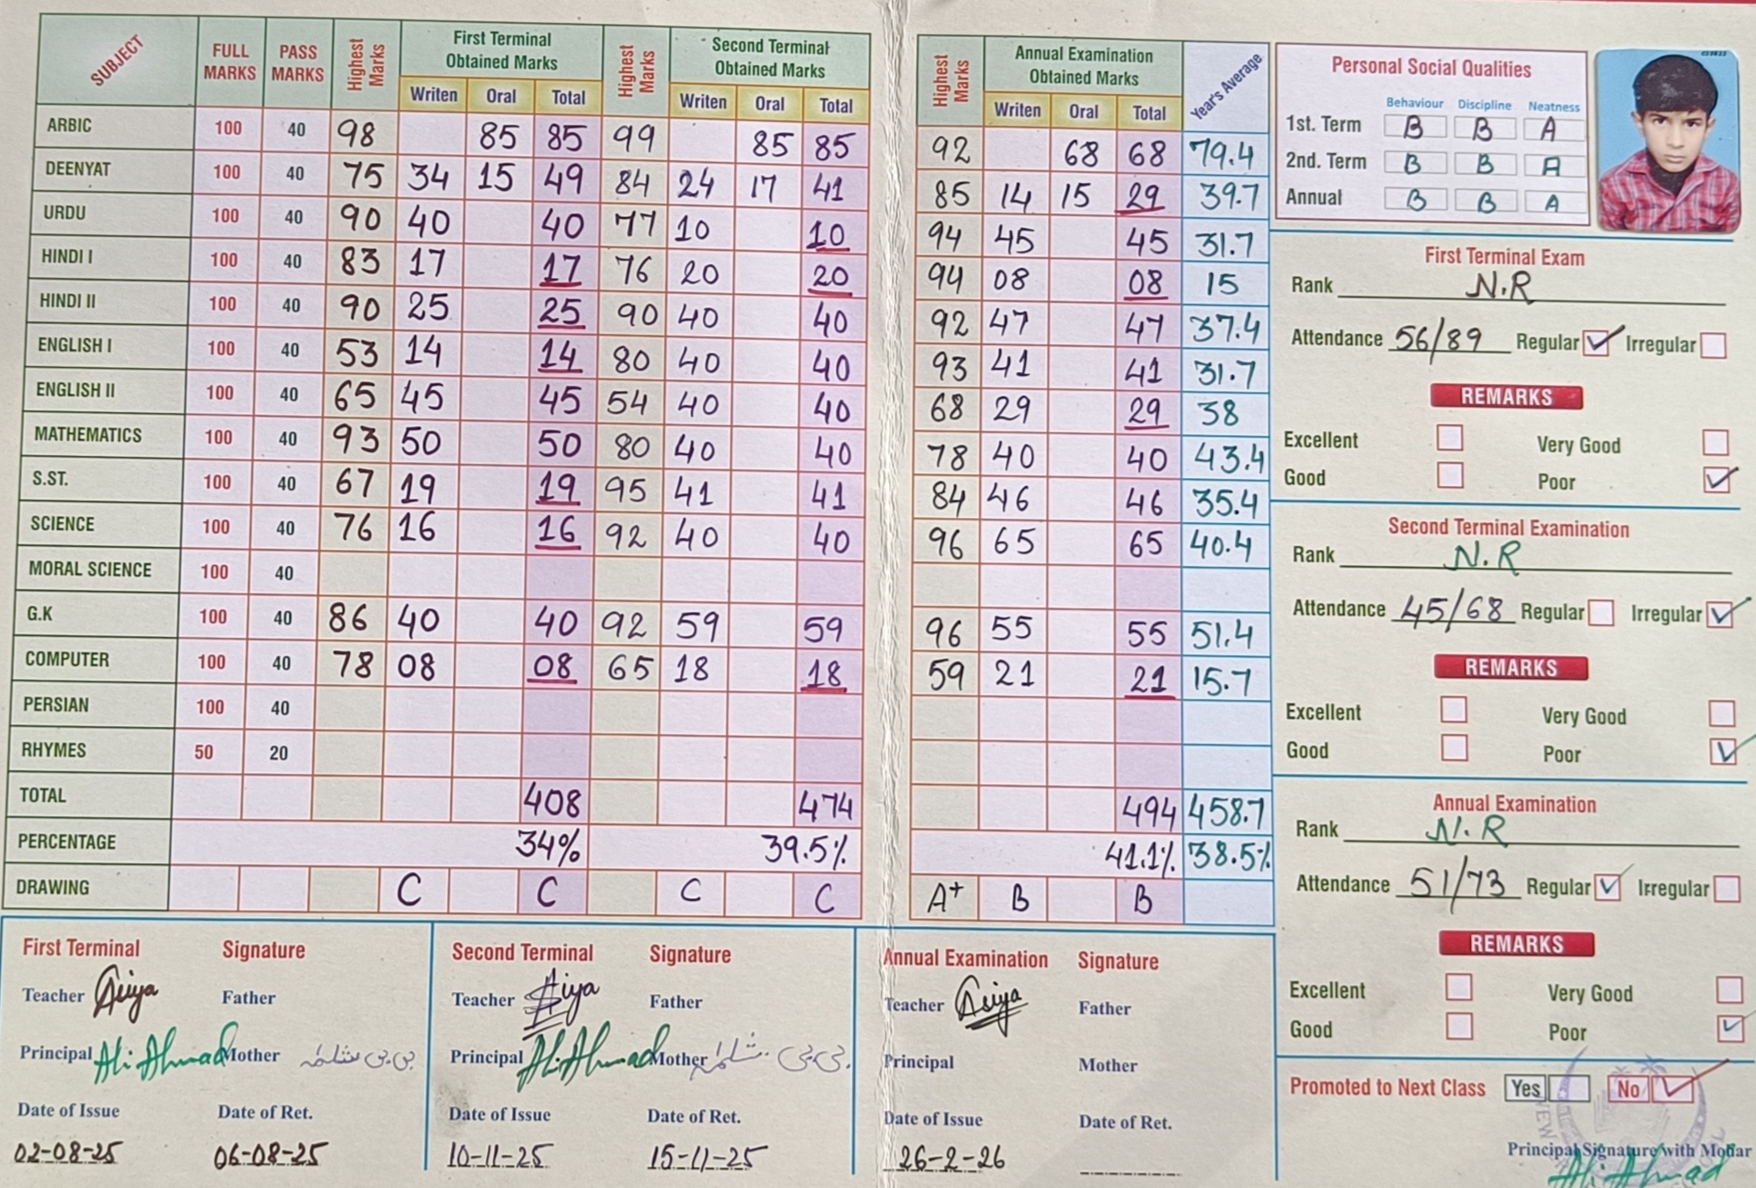 SUBJECT FULL MARKS PASS MARKS Highest Marks First Terminal Obtained Marks Highest Marks Second Terminal Obtained Marks Highest Marks Annual Examination Obtained Marks Year's Average
Writen Oral Total Writen Oral Total Writen Oral Total
ARBIC 100 40 98 85 85 99 85 85 92 68 68 79.4
DEENYAT 100 40 75 34 15 49 84 24 17 41 85 14 15 29 39.7
URDU 100 40 90 40 40 77 10 10 94 45 45 31.7
HINDI I 100 40 83 17 17 76 20 20 94 08 08 15
HINDI II 100 40 90 25 25 90 40 40 92 47 47 37.4
ENGLISH I 100 40 53 14 14 80 40 40 93 41 41 31.7
ENGLISH II 100 40 65 45 45 54 40 40 68 29 29 38
MATHEMATICS 100 40 93 50 50 80 40 40 78 40 40 43.4
S.ST. 100 40 67 19 19 95 41 41 84 46 46 35.4
SCIENCE 100 40 76 16 16 92 40 40 96 65 65 40.4
MORAL SCIENCE 100 40
G.K 100 40 86 40 40 92 59 59 96 55 55 51.4
COMPUTER 100 40 78 08 08 65 18 18 59 21 21 15.7
PERSIAN 100 40
RHYMES 50 20
TOTAL 408 474 494 458.7
PERCENTAGE 34% 39.5% 41.1% 38.5%
DRAWING C C C C A+ B B
Personal Social Qualities
Behaviour Discipline Neatness
1st. Term B B A
2nd. Term B B A
Annual B B A
First Terminal Exam
Rank N.R
Attendance 56/89 Regular Irregular
REMARKS
Excellent Very Good
Good Poor
Second Terminal Examination
Rank N.R
Attendance 45/68 Regular Irregular
REMARKS
Excellent Very Good
Good Poor
Annual Examination
Rank N.R
Attendance 51/73 Regular Irregular
REMARKS
Excellent Very Good
Good Poor
Promoted to Next Class Yes No
Principal Signature with Mohar
Ali Ahmad
First Terminal Signature
Teacher Asiya Father
Principal Ali Ahmad Mother
Date of Issue Date of Ret.
02-08-25 06-08-25
Second Terminal Signature
Teacher Asiya Father
Principal Ali Ahmad Mother
Date of Issue Date of Ret.
10-11-25 15-11-25
Annual Examination Signature
Teacher Asiya Father
Principal Mother
Date of Issue Date of Ret.
26-2-26